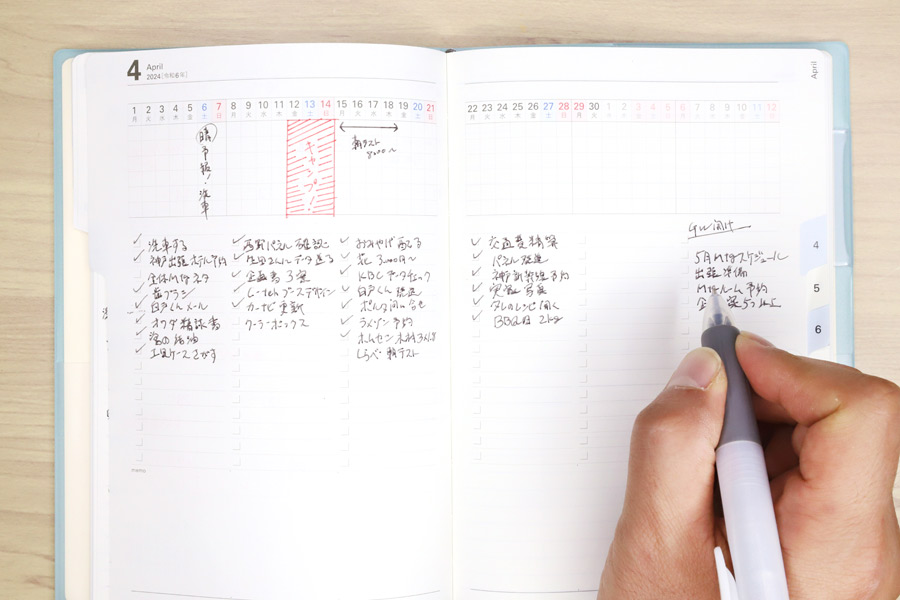 4 April
2024[令和6年]
1 2 3 4 5 6 7 8 9 10 11 12 13 14 15 16 17 18 19 20 21
月 火 水 木 金 土 日 月 火 水 木 金 土 日 月 火 水 木 金 土 日
晴予報!洗車
キャンプ!
朝テスト
8:00〜
洗車する
神戸出張ホテル予約
全体Mtgネタ
歯ブラシ
白戸くんメール
オフダ 請求書
工具ケースさがす
西野パネル確認
生田さんデータ送る
企画書3案
C-tehブースデザイン
カーナビ更新
クーラーボックス
おみやげ配る
花 3,000円〜
KBCデータチェック
白戸くん
ラメゾン予約
ホムセン 木材
しらべ・朝テスト
memo
April
22 23 24 25 26 27 28 29 30 1 2 3 4 5 6 7 8 9 10 11 12
月 火 水 木 金 土 日 月 火 水 木 金 土 日 月 火 水 木 金 土 日
交通費精算
パネル発送
神戸新幹線予約
実施写真
タレのレシピ聞く
BBQ肉 2kg
GW明け
5月Mtgスケジュール
出張準備
Mtgルーム予約
4
5
6